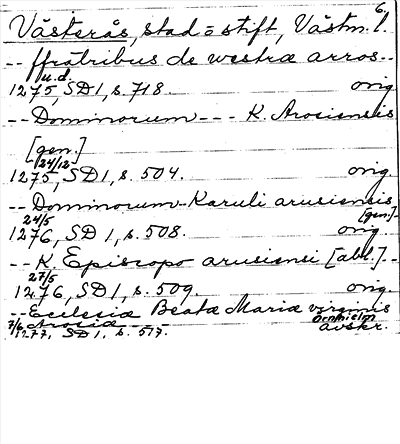 6.
Västerås, stad o stift, Västm. l.
-- ffratribus de westra arros --
u.d.
1275, SD 1, s. 718. orig.
-- Dominorum --- K. Arosiensis
[gen.]
24/12
1275, SD 1, s. 504. orig.
-- Dominorum - Karuli arusiensis
24/5 [gen.]
1276, SD 1, s. 508. orig.
-- K. Episcopo arusiensi [abl.] --
27/5
1276, SD 1, s. 509. orig.
-- Ecclesiæ Beatæ Mariæ virginis
7/6 Arosiæ -- Örnhielm
1277, SD 1, s. 517. avskr.